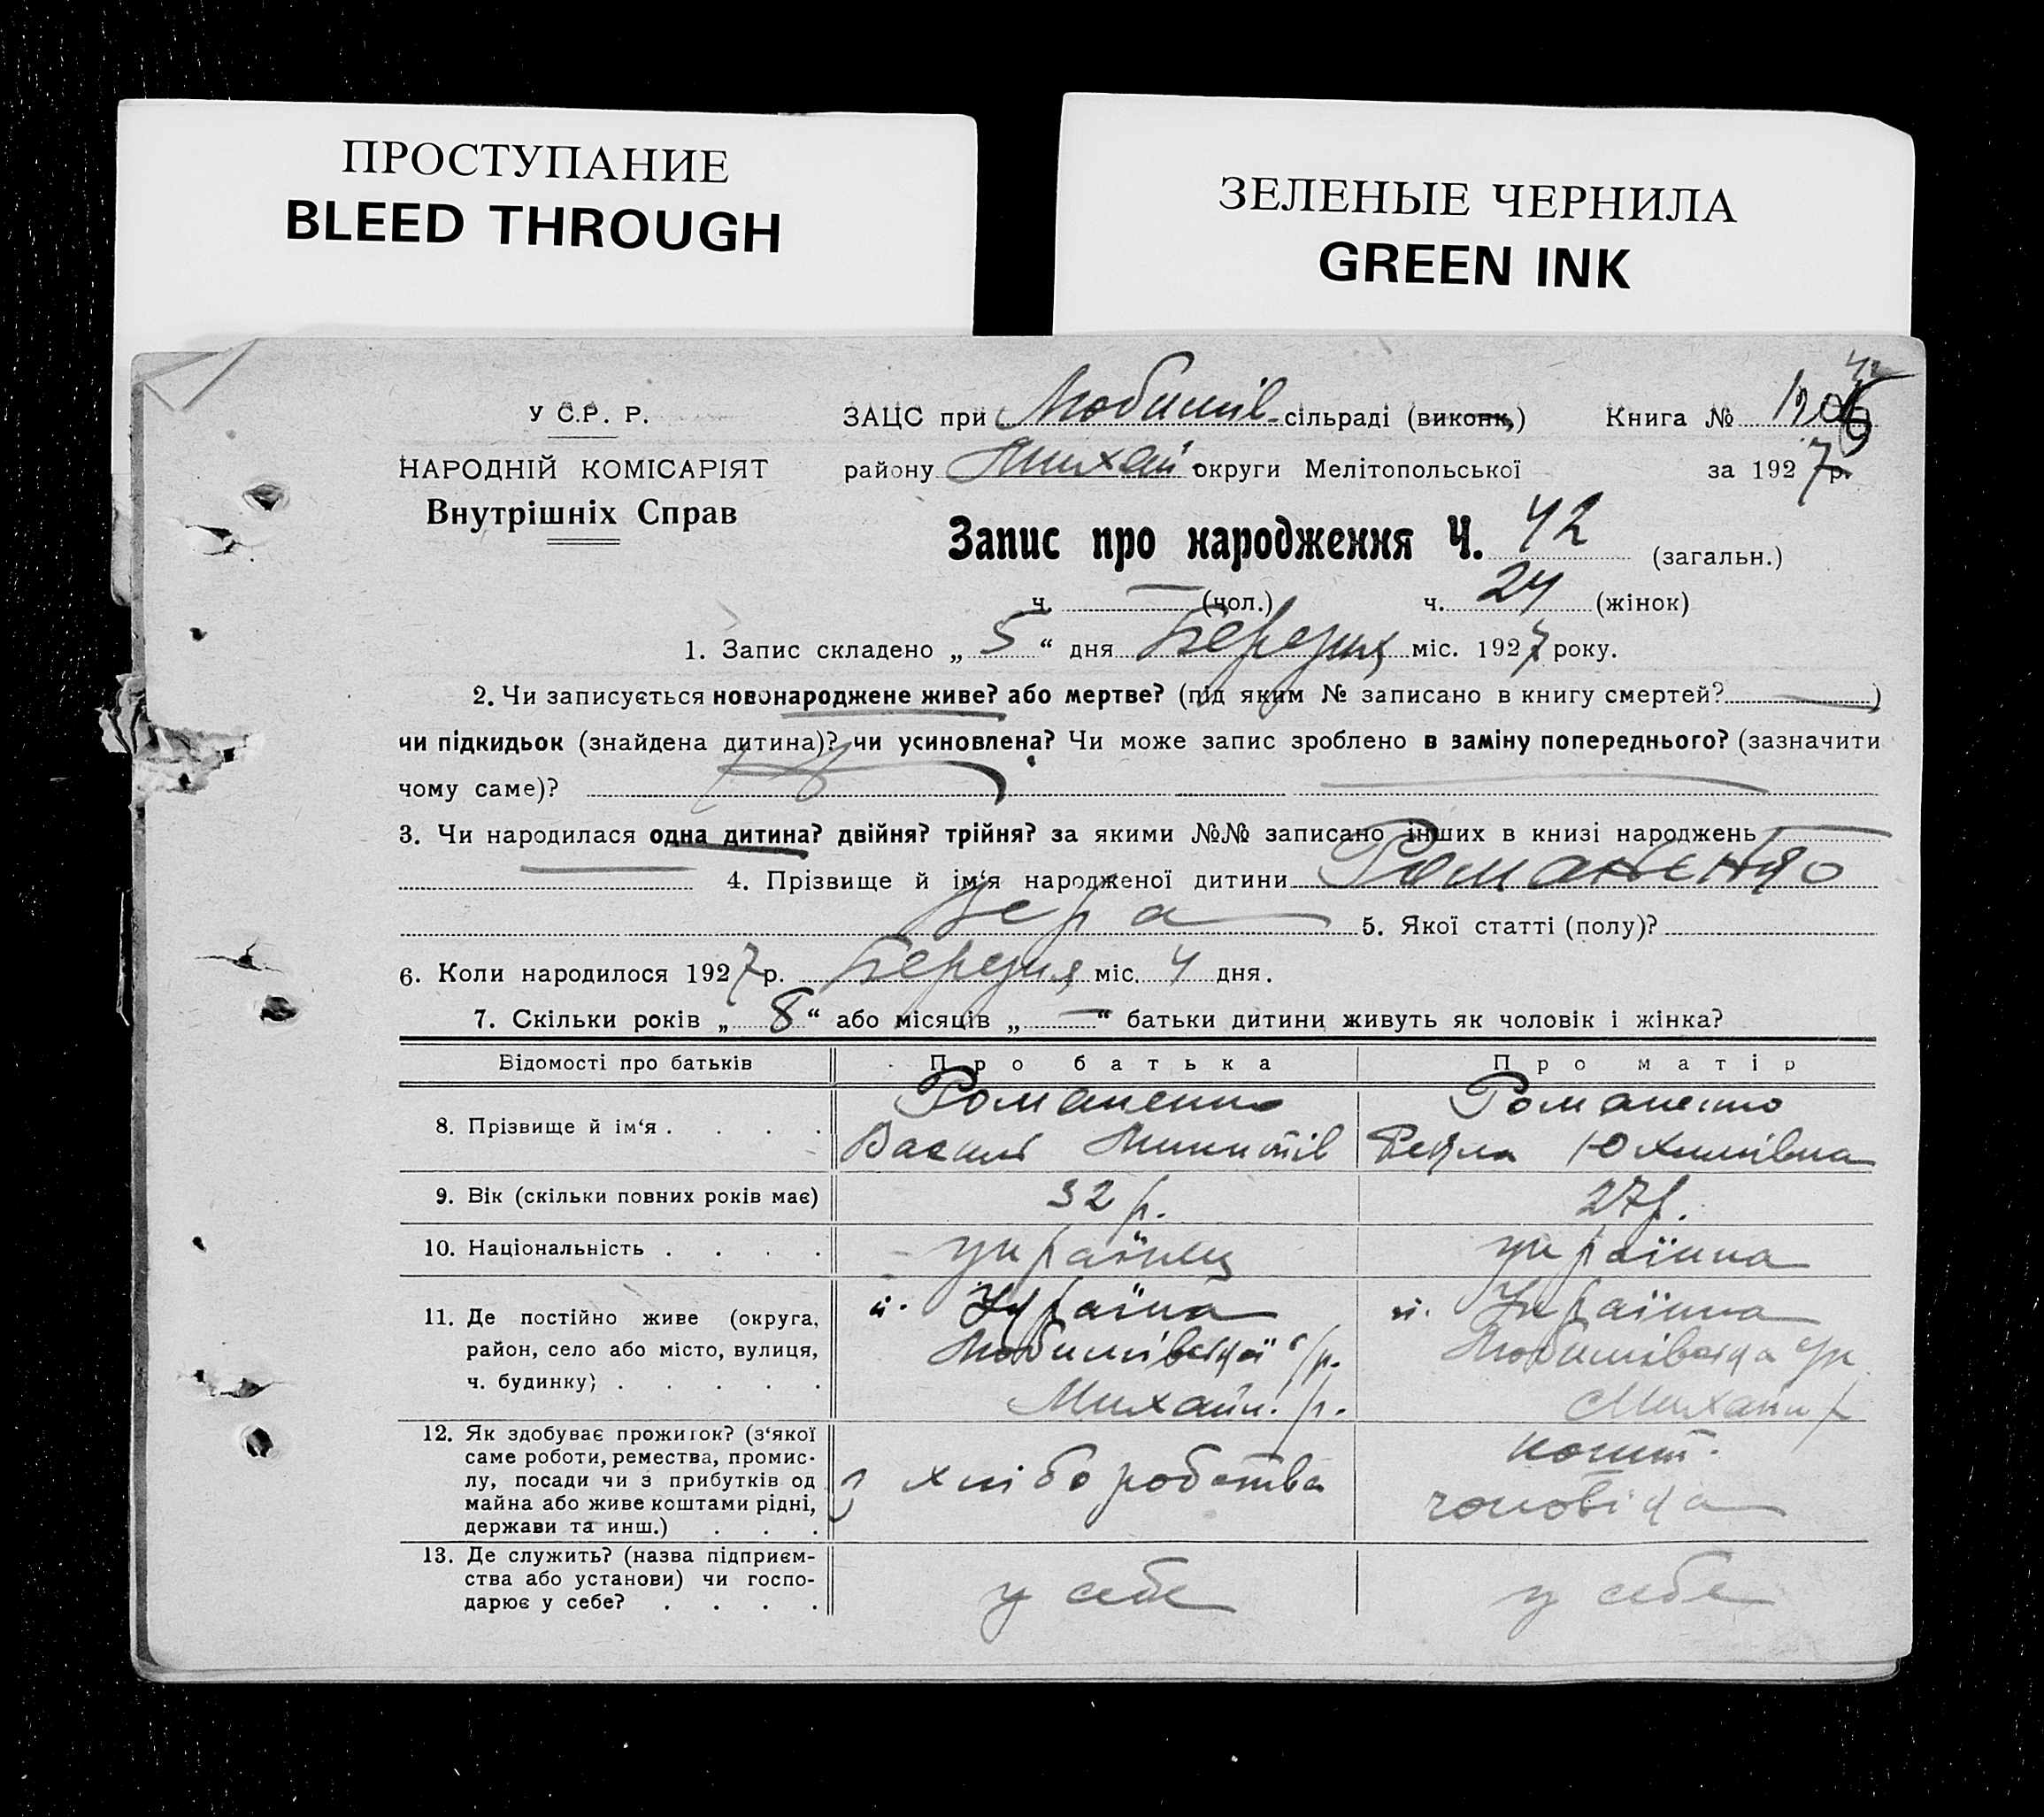 ПРОСТУПАНИЕ
BLEED THROUGH
ЗЕЛЕНЫЕ ЧЕРНИЛА
GREEN INK
42
У С.Р. Р.
НАРОДНІЙ КОМІСАРІЯТ
Внутрішніх Справ
ЗАЦС при Любимів-сільраді (виконк.) Книга №
району Михай округи Мелітопольської за 1927р.
Запис про народження Ч. 42 (загальн.)
ч. — (чол.) ч. 24 (жінок)
1. Запис складено „ 5 “ дня Березня міс. 1927 року.
2. Чи записується новонароджене живе? або мертве? (під яким № записано в книгу смертей? — )
чи підкидьок (знайдена дитина)? чи усиновлена? Чи може запис зроблено в заміну попереднього? (зазначити
чому саме)?
3. Чи народилася одна дитина? двійня? трійня? за якими №№ записано інших в книзі народжень —
— 4. Прізвище й ім‘я народженої дитини Романенко
Вера 5. Якої статті (полу)?
6. Коли народилося 1927р. Березня міс. 4 дня.
7. Скільки років „ 8 “ або місяців „ — “ батьки дитини живуть як чоловік і жінка?
Відомості про батьків Про батька Про матір
8. Прізвище й ім‘я . . . . Романенко Романенко
Василь Микитів Текля Юхимівна
9. Вік (скільки повних років має) 32 р. 27 р.
10. Національність . . . . українец українка
11. Де постійно живе (округа, Україна Україна
район, село або місто, вулиця, Любимівської с/р. Любимівська с/р
ч. будинку) . . . . . Михайл. р. Михайл р
12. Як здобуває прожиток? (з‘якої
саме роботи, ремества, промис-
лу, посади чи з прибутків од
майна або живе коштами рідні,
держави та инш.) . . .
з хліборобства
кошт.
чоловіка
13. Де служить? (назва підприєм-
ства або установи) чи госпо-
дарює у себе? . . . .
у себе у себе